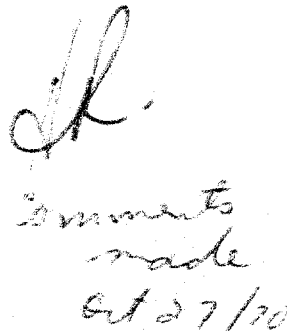 Comments
made
Oct 27/70